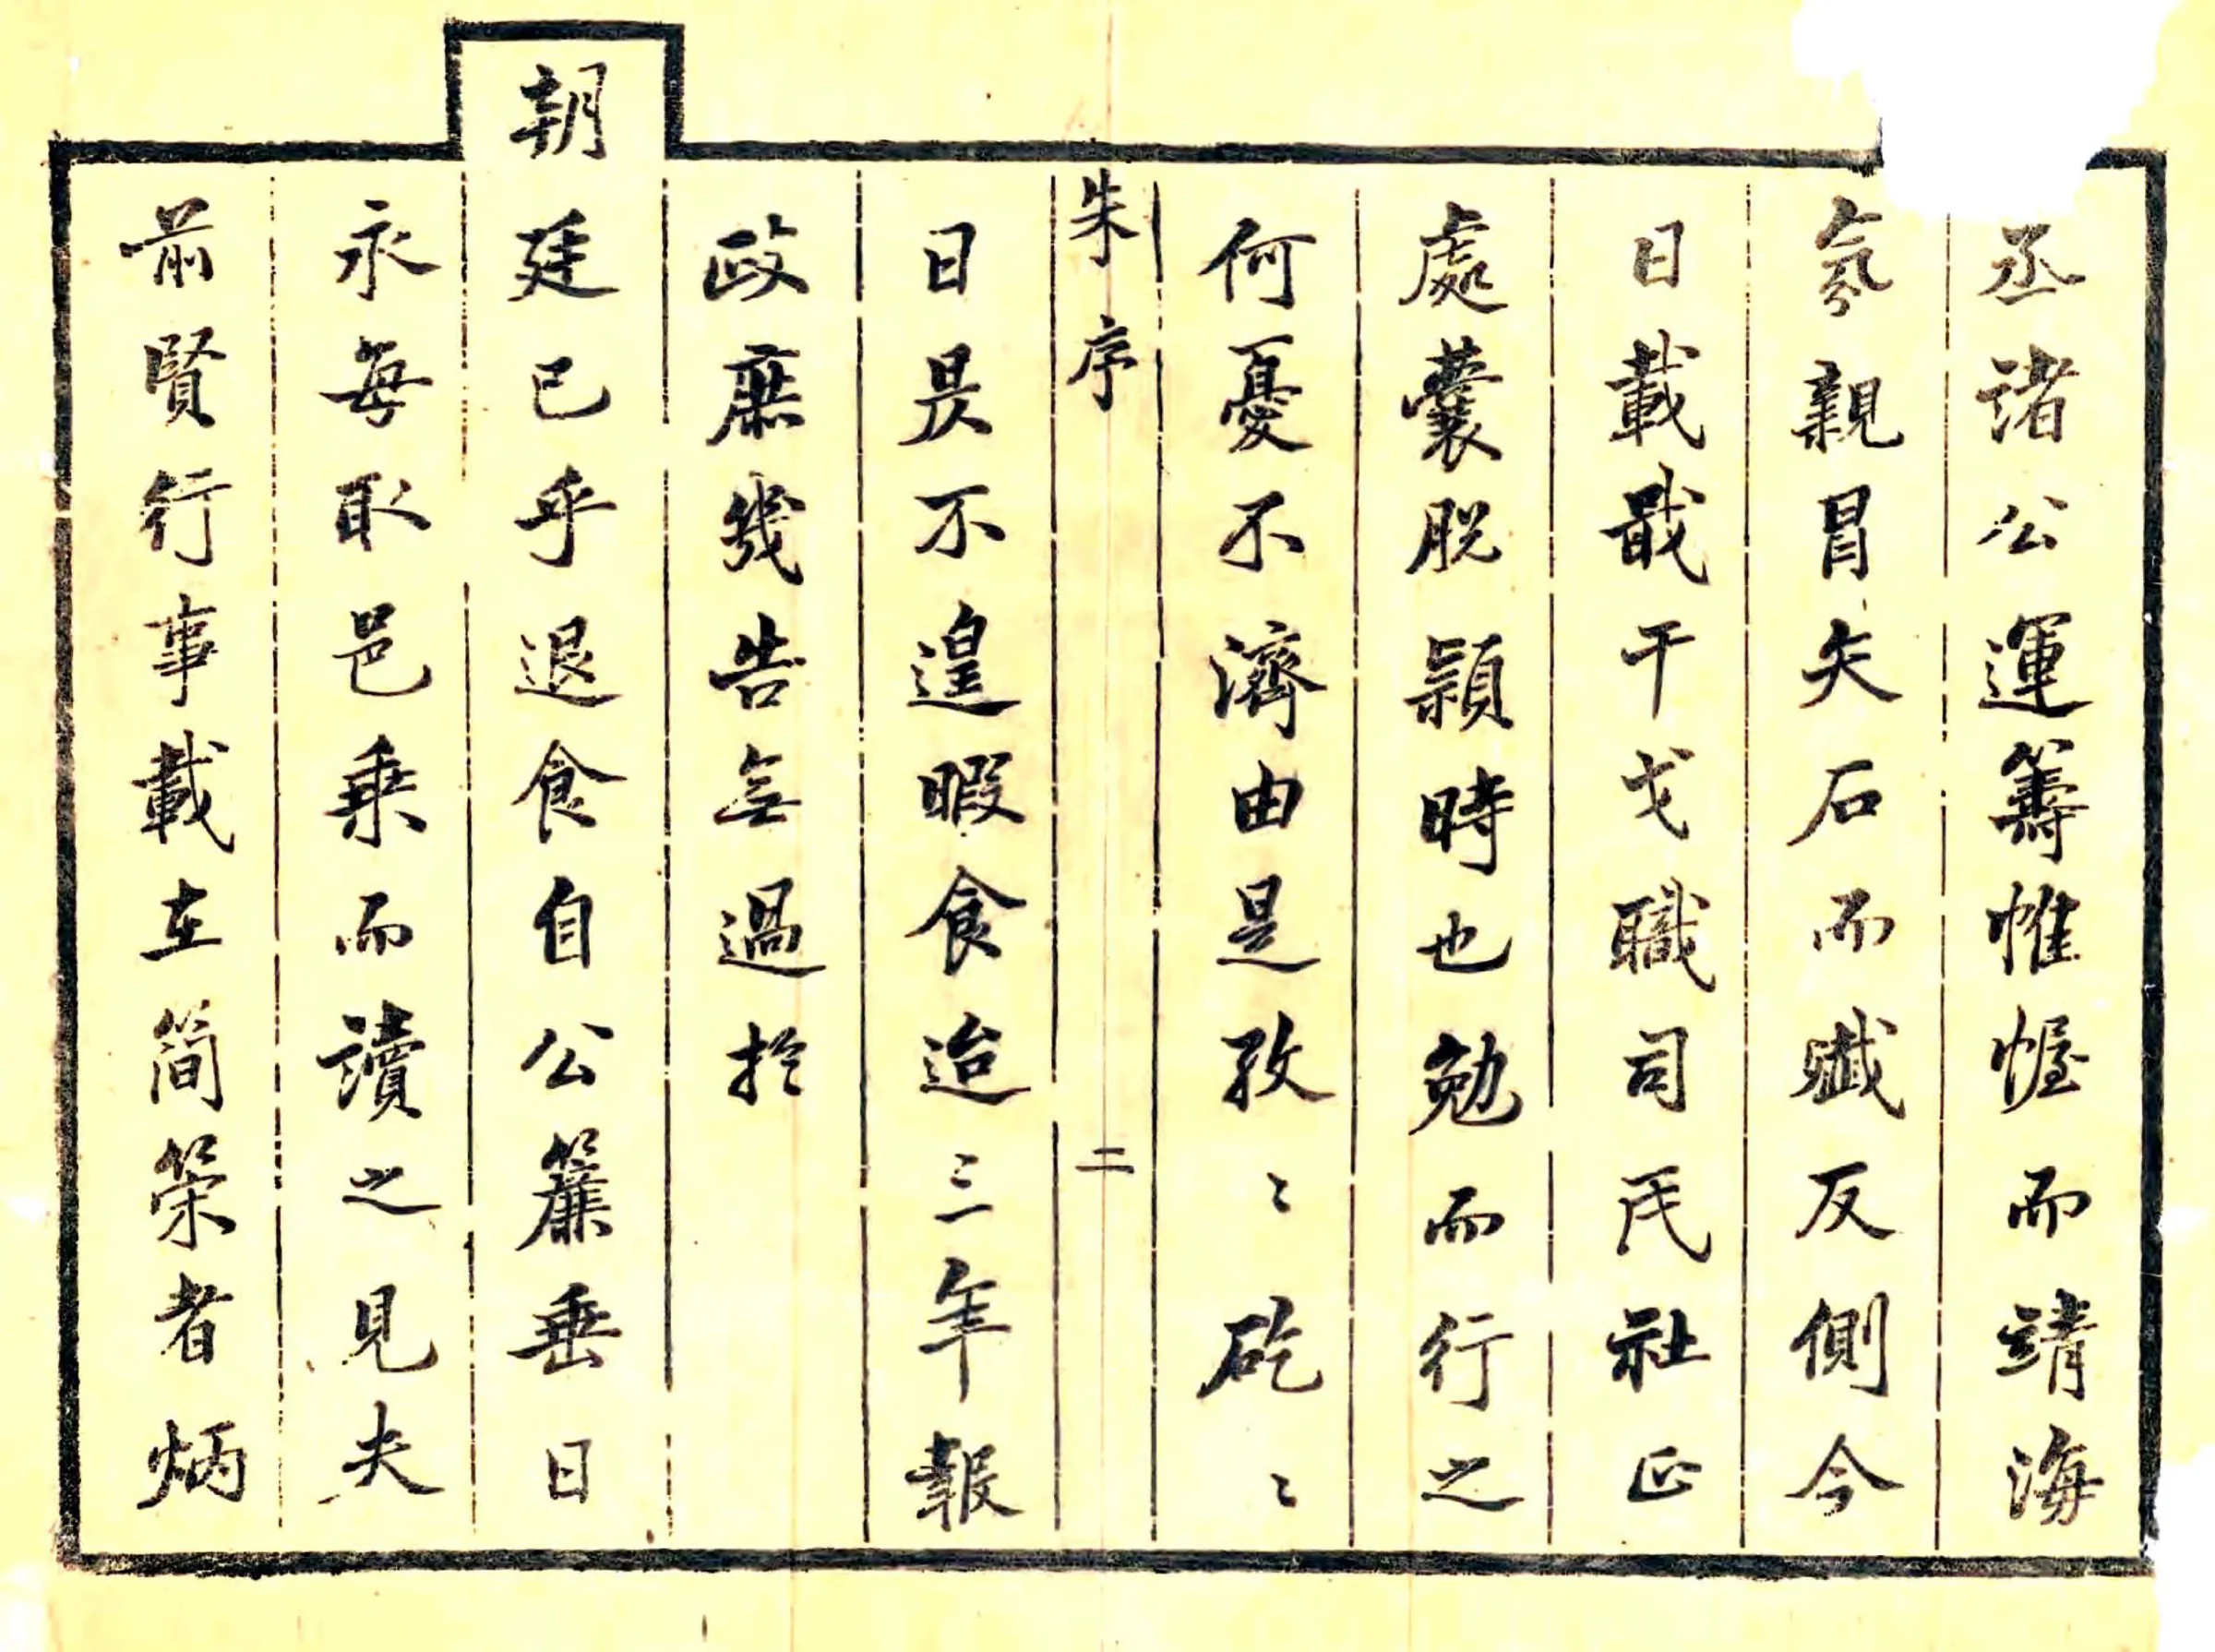 丞諸公運籌帷幄而靖海
氛親冒矢石而殲反側今
日載戢干戈職司民社正
處囊脱穎時也勉而行之
何憂不濟由是孜〻矻〻
朱序 二
日昃不遑暇食迨三年報
政庶幾告無過於
朝廷已乎退食自公簾垂日
永每取邑乗而讀之見夫
前賢行事載在简策者炳